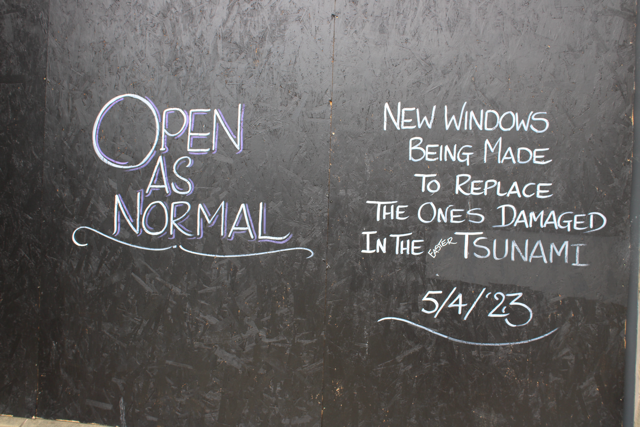 OPEN
AS
NORMAL
NEW WINDOWS
BEING MADE
TO REPLACE
THE ONES DAMAGED
IN THE EASTER TSUNAMI
5/4/'23